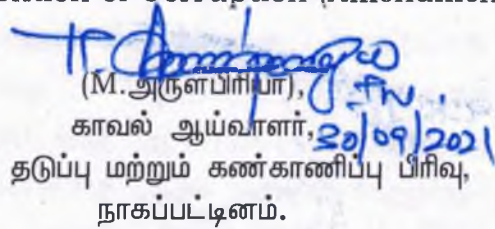 (M.அருள்பிரியா),
காவல் ஆய்வாளர், 30/09/2021
தடுப்பு மற்றும் கண்காணிப்பு பிரிவு,
நாகப்பட்டினம்.